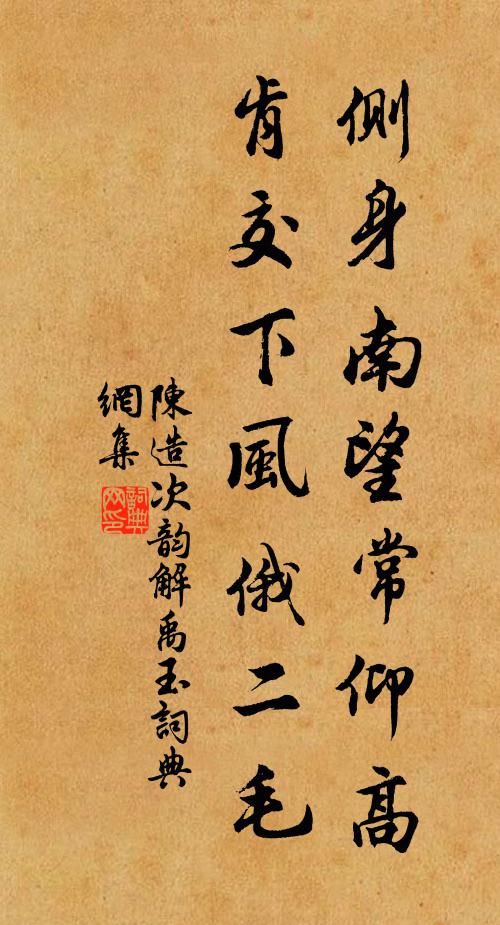 側身南望常仰高
肯交下風俄二毛
陳造次韵解禹玉詞典
網集
詞典
网印